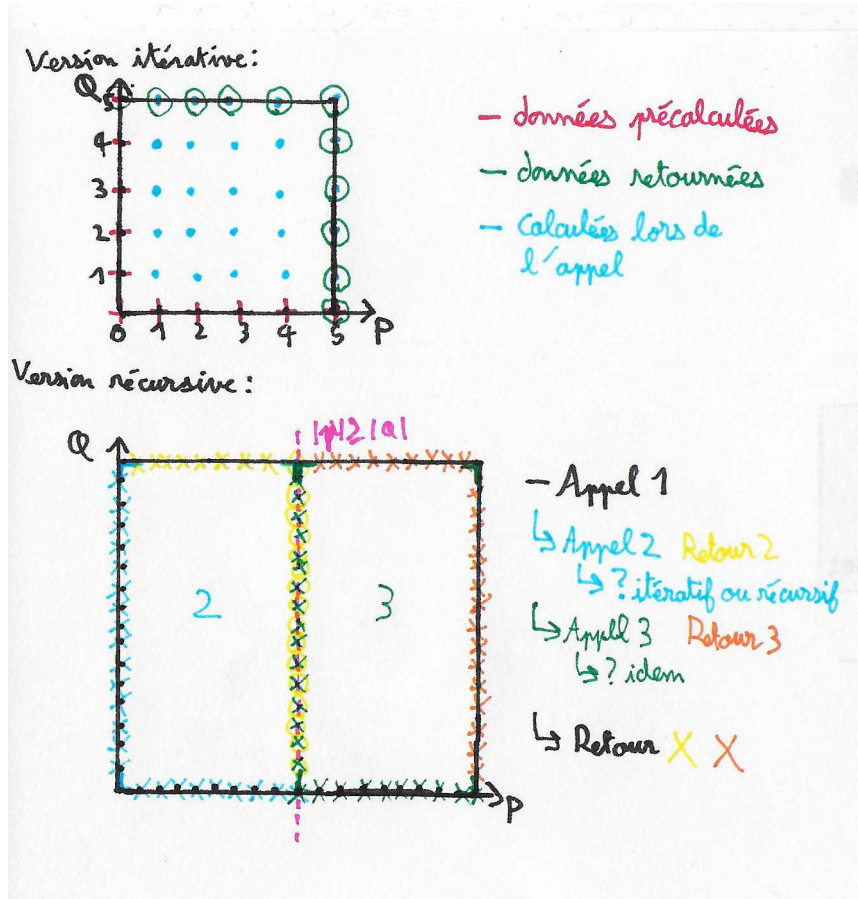 Version itérative:
Q
5
4
3
2
1
0 1 2 3 4 5 P
- données précalculées
- données retournées
- Calculées lors de
l'appel
Version récursive:
Q
2
3
P
- Appel 1
↳ Appel 2 Retour 2
↳ ? itératif ou récursif
↳ Appel 3 Retour 3
↳ ? idem
↳ Retour X X